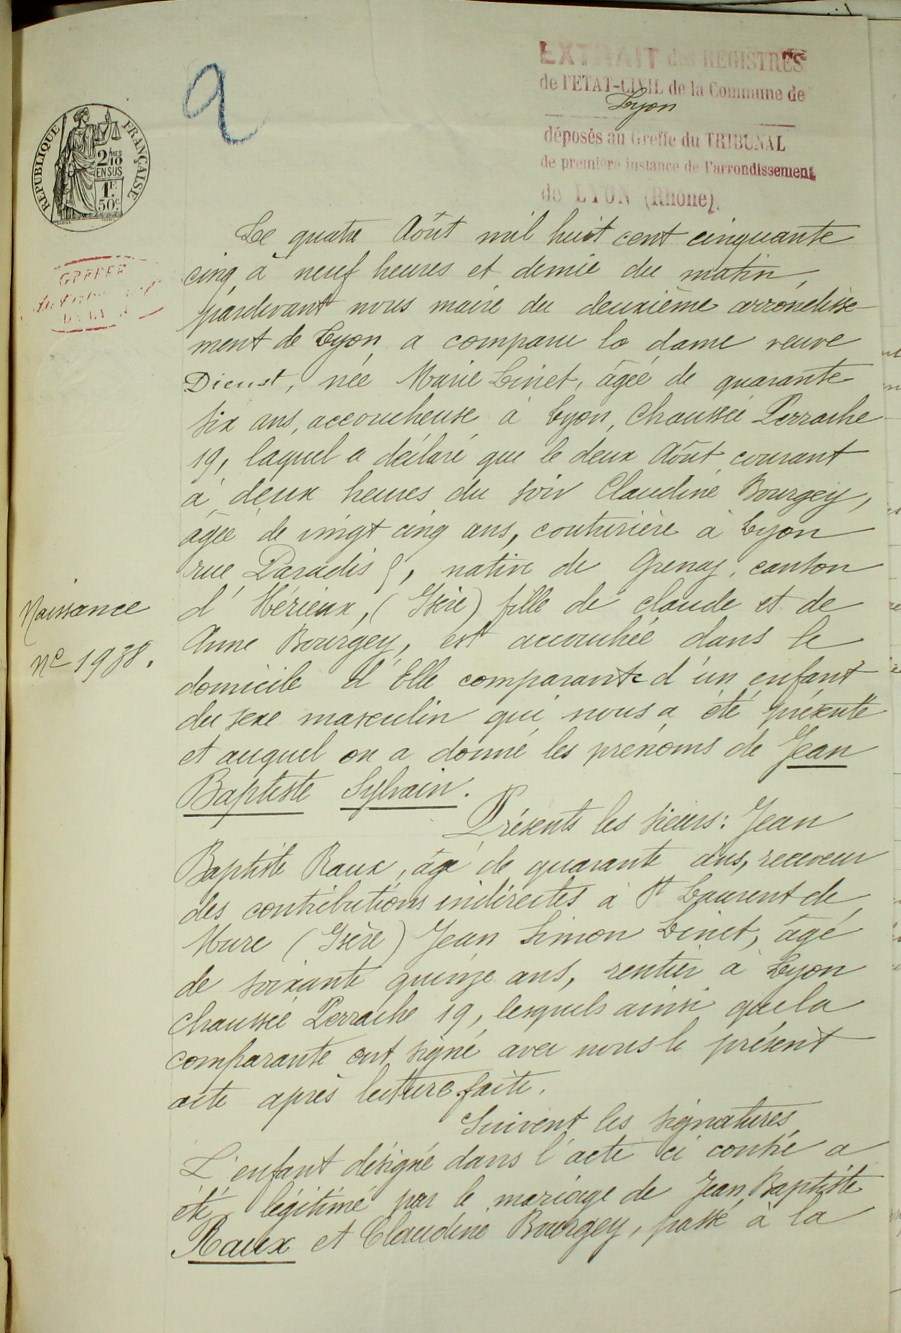 9
EXTRAIT des REGISTRES
de l'ETAT-CIVIL de la Commune de
Lyon
déposés au Greffe du TRIBUNAL
de première instance de l'arrondissement
de LYON (Rhône).
RÉPUBLIQUE FRANÇAISE
2/10
EN SUS
1F
50c
GREFFE
Le quatre Août mil huit cent cinquante
cinq à neuf heures et demie du matin,
pardevant nous maire du deuxième arrondisse-
ment de Lyon a comparu la dame veuve
Dienst, née Marie Linet, âgée de quarante
six ans, accoucheuse à Lyon, Chaussée Perrache
19, laquel a déclaré que le deux Août courant
à deux heures du soir Claudine Bourgey,
âgée de vingt cinq ans, couturière à Lyon
rue Paradis, native de Grenay, canton
d'Hérieux, (Isère) fille de Claude et de
Anne Bourgey, est accouchée dans le
domicile d'Elle comparante d'un enfant
du sexe masculin qui nous a été présenté
et auquel on a donné les prénoms de Jean
Baptiste Sylvain.
Présents les sieurs: Jean
Baptiste Raux, âgé de quarante ans, receveur
des contributions indirectes à St Laurent de
Mure (Isère) Jean Simon Linet, âgé
de soixante quinze ans, rentier à Lyon
chaussée Perrache 19, lesquels ainsi que la
comparante ont signé avec nous le présent
acte après lecture faite.
Suivent les signatures
L'enfant désigné dans l'acte ci contre a
été légitimé par le mariage de Jean Baptiste
Raux et Claudine Bourgey, passé à la
Naissance
No 1938.